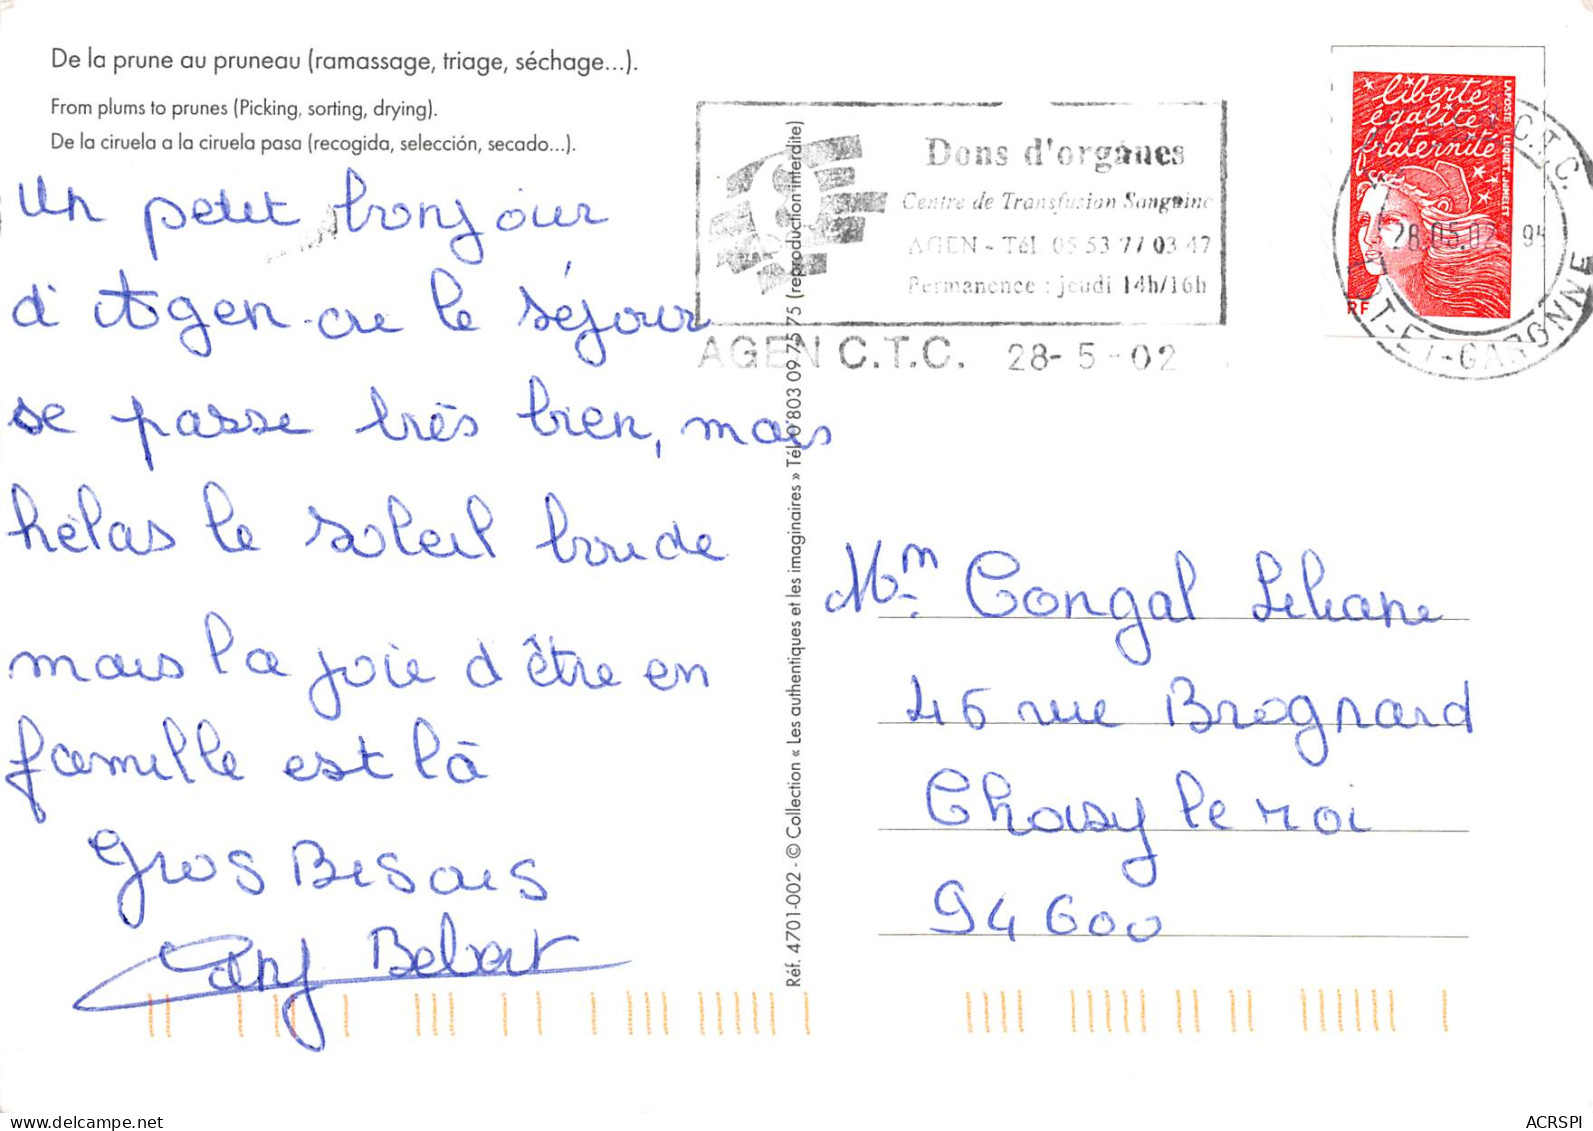 De la prune au pruneau (ramassage, triage, séchage...).
From plums to prunes (Picking, sorting, drying).
De la ciruela a la ciruela pasa (recogida, selección, secado...).
Un petit bonjour
d'Agen où le séjour
se passe très bien, mais
hélas le soleil boude
mais la joie d'être en
famille est là
Gros Bisous
Réf. 4701-002 - © Collection « Les authentiques et les imaginaires » Tél. 0 803 09 75 75 (reproduction interdite)
Dons d'organes
Centre de Transfusion Sanguine
AGEN - Tél 05 53 77 03 47
Permanence : jeudi 14h/16h
AGEN C.T.C. 28-5-02
liberté
égalité
fraternité
LA POSTE LUQUET-JUMELET
RF
C.T.C.
28.05.02 94
LOT-ET-GARONNE
Mm Congal Liliane
46 rue Brognard
Choisy le roi
94600
ACRSPI